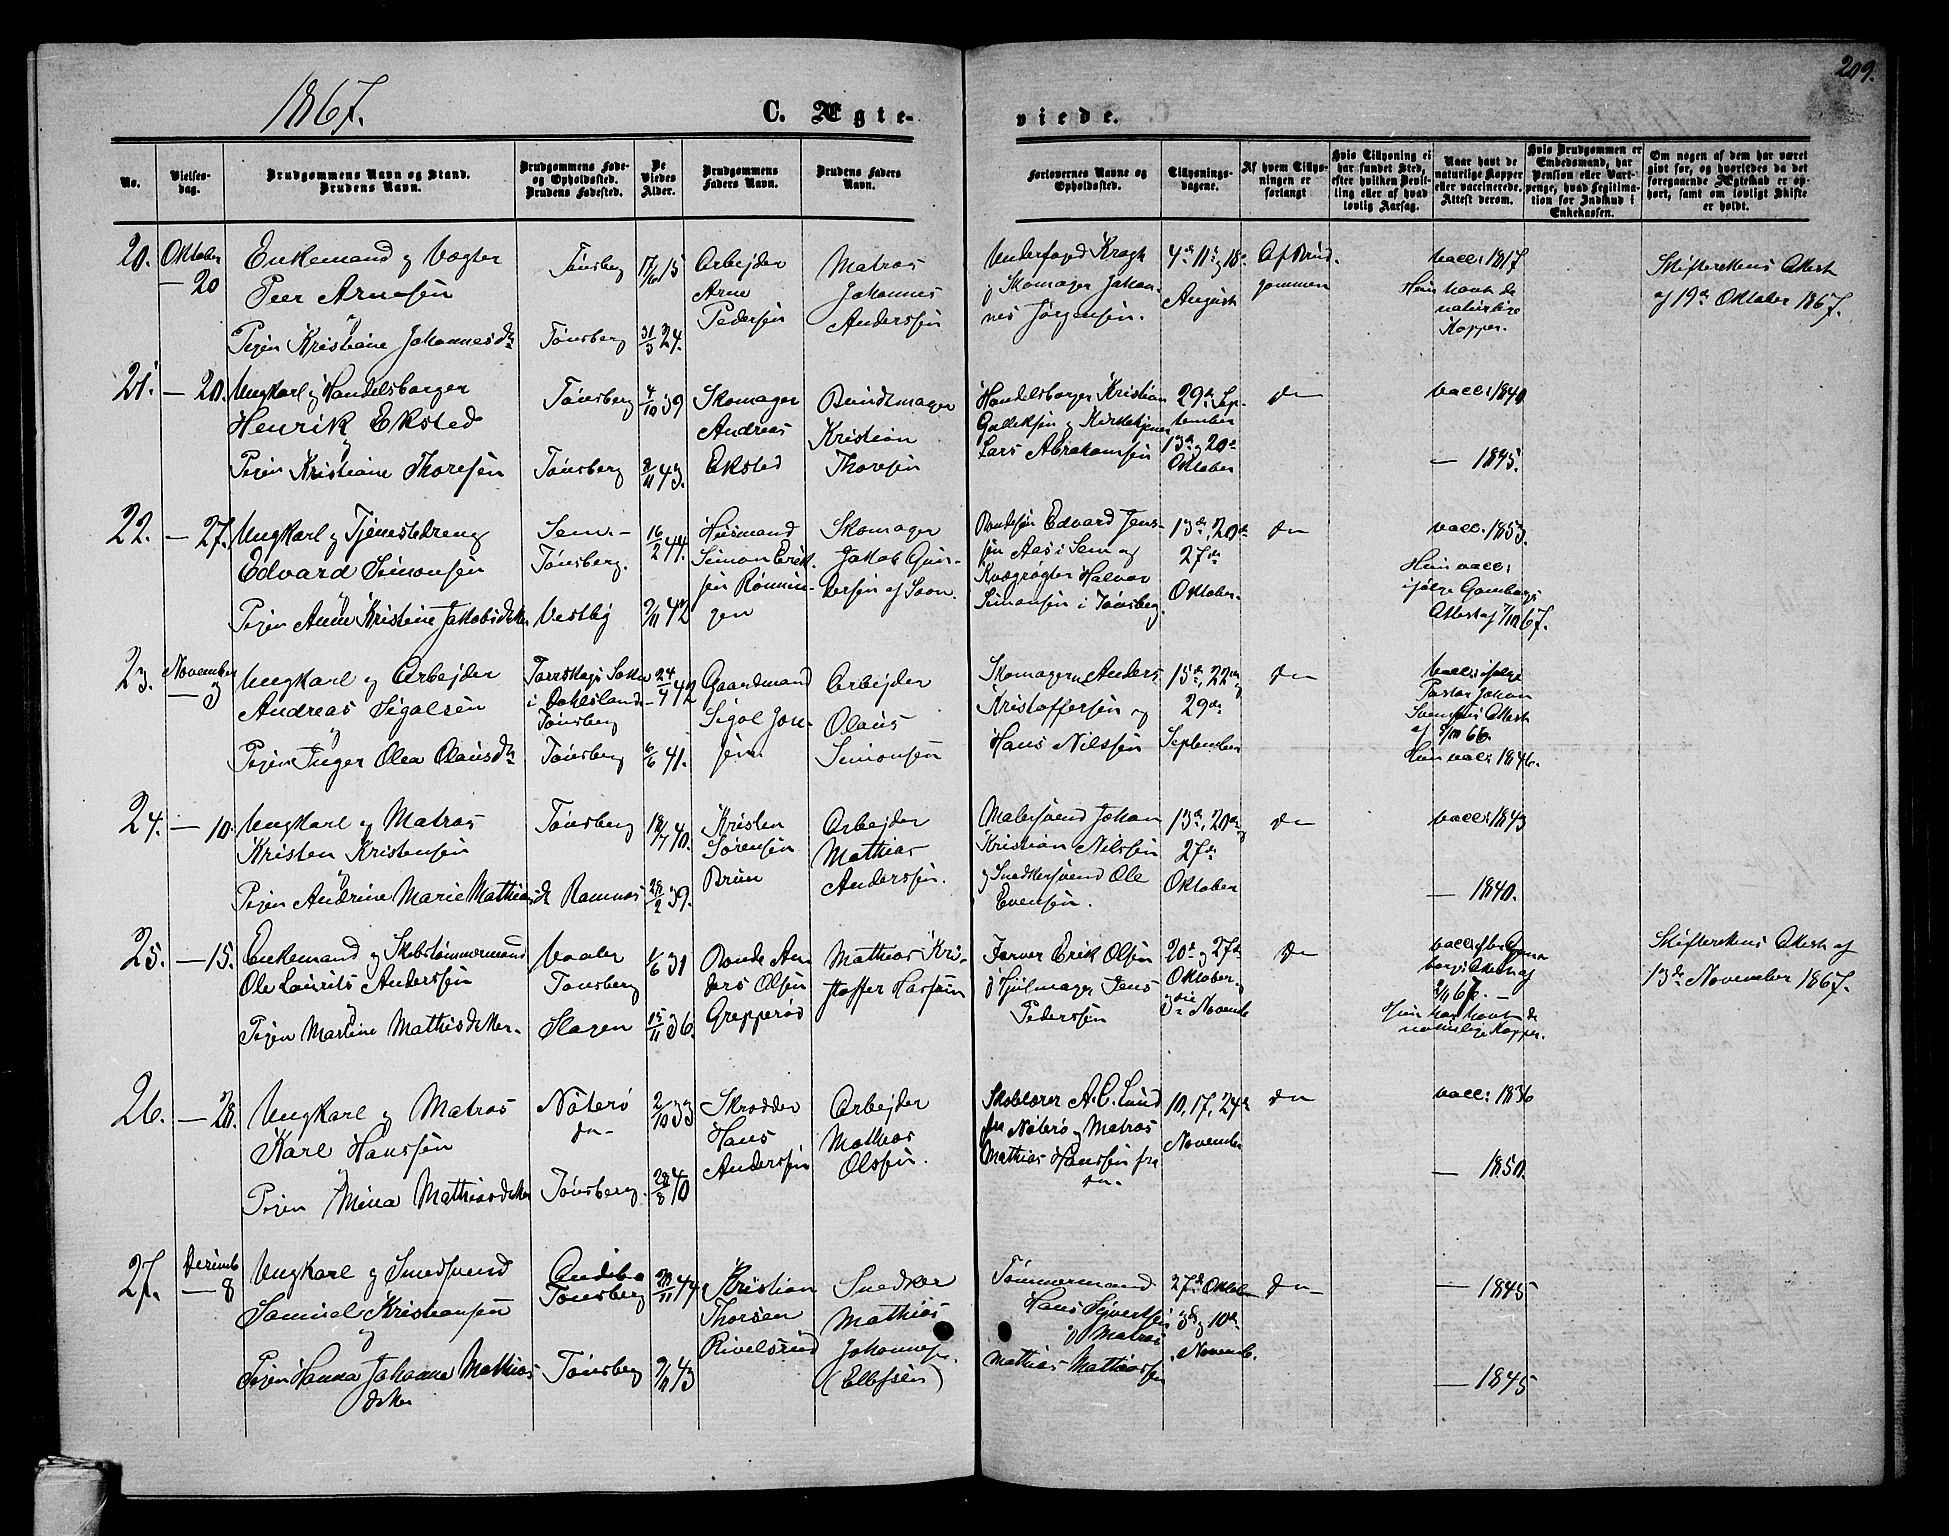 1867.
C. Ægte-
viede.
209.
No.
Vielses-
dag.
Brudgommens Navn og Stand.
Brudens Navn.
Brudgommens Føde-
og Opholdssted.
Brudens Fødested.
De
Viedes
Alder.
Brudgommens
Faders Navn.
Brudens Faders
Navn.
Forlovernes Navne og
Opholdssted.
Tillysnings-
dagene.
Af hvem Tillys-
ningen er
forlangt
Hvis Tillysning ei
har fundet Sted,
efter hvilken Bevil-
ling eller af hvad
lovlig Aarsag.
Naar havt de
naturlige Kopper
eller vaccinerede.
Attest derom.
Hvis Brudgommen er
Embedsmand, har
Pension eller Vart-
penge, hvad Legitima-
tion for Indskud i
Enkekassen.
Om nogen af dem har været
gift før, og hvorledes da det
foregaaende Ægteskab er op-
hørt, samt om lovligt Skifte
er holdt.
20.
Oktober
— 20
Enkemand og Vogter
Peer Arnesen
og
Pigen Kristiane Johannesdr
Tönsberg
Tönsberg
17/6 15
31/3 24.
Arbejder
Arne
Pedersen
Matros
Johannes
Anderssen
Underfoged Kragh
og Skomager Johan-
nes Jørgensen.
4de 11te og 18de
August
Af Brud-
gommen
vacc: 1817
Hun havt de
naturlige
Kopper.
Skifterettens Attest
af 19de Oktober 1867.
21.
— 20.
Ungkarl og Handelsborger
Henrik Eksted
og
Pigen Kristiane Thoresen
Tönsberg
Tönsberg
4/10 39
8/11 43.
Skomager
Andreas
Eksted
Bundtmager
Kristian
Thoresen
Handelsborger Kristian
Gulliksen og Kirketjener
Lars Abrahamsen
29de Sep-
tember
13de og 20de
Oktober
do
vacc: 1840
— 1845.
22.
— 27.
Ungkarl og Tjenestedreng
Edvard Simonsen
og
Pigen Anne Kristine Jakobsdatter
Sem.-
Tönsberg.
Vestby
16/2 44.
2/11 42
Husmand
Simon Erik-
sen Rønnin-
gen
Skomager
Jakob Gun-
dersen af Soon.
Bondesøn Edvard Jens-
sen Aas i Sem og
Kvægrøgter Halvor
Simonsen i Tönsberg
13de, 20de
27de
Oktober.
do
vacc: 1853.
Hun vacc:
ifølge Gamborgs
Attest af 7/10 67.
23.
November
— 3
Ungkarl og Arbejder
Andreas Sigolsen
og
Pigen Inger Olea Olausdr
i Dahlsland-
Tönsberg
Tönsberg
24/4 42
6/6 41.
Gaardmand
Sigol Jon-
sen.
Arbejder
Olaus
Simonsen
Skomagerne Anders
Kristoffersen og
Hans Nilssen
15de, 22de og
29de
September
do
vacc: ifølge
Pastor Johan
Svensens Attest
Hun vacc: 1846.
24.
— 10.
Ungkarl og Matros
Kristen Kristensen
og
Pigen Andrine Marie Mathiasd
Tönsberg
Ramnes
18/7 40.
28/2 39.
Kristen
Sørensen
Bruun
Arbejder
Mathias
Anderssen.
Malersvend Johan
Kristian Nilssen
og Snedkersvend Ole
Evensen.
13de, 20de og
27de
Oktober
do
vacc: 1843
— 1840.
25.
— 15.
Enkemand og Skibstømmermand
Ole Laurits Anderssen
og
Pigen Martine Mathisdatter.
Vaaler
Tönsberg
Slagen
1/6 31
15/11 36.
Bonde An
ders Olsen
Grepperød
Mathias Kri-
stoffer Hassen
Farver Erik Olsen
og Hjulmager Jens
Pederssen
20de og 27de
Oktober og
3die Novemb
do
Hun har havt de
naturlige Kopper.
Skifterettens Attest af
13de November 1867.
26.
— 28.
Ungkarl og Matros
Karl Hanssen
og
Pigen Mina Mathiasdatter
Nöterö
do-
Tönsberg.
2/10 33
28/8 40
Skrædder
Hans
Anderssen
Arbejder
Mathias
Olssen.
Skolelærer A. C. Lund
fra Nöterö og Matros
Mathias Hanssen fra
do-
10, 17, 24de
November
do
vacc: 1836
— 1850.
27.
Decemb
— 8
Ungkarl og Smedsvend
Samuel Kristiansen
og
Pigen Hanna Johanne Mathias
datter
Andebu
Tönsberg
Tönsberg
20/11 44
2/11 43
Kristian
Thorsen
Rivelsrud
Snedker
Mathias
Johannes.
(Ellefsen)
Tømmermand
Hans Sjvertsen
og Matros
Mathias Mathiassen
27de Oktober
3de og 10de
Novemb.
do-
— 1845
— 1845